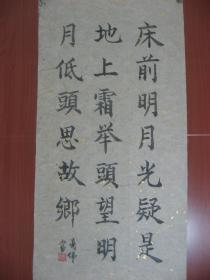 床前明月光疑是
地上霜举頭望明
月低頭思故鄉